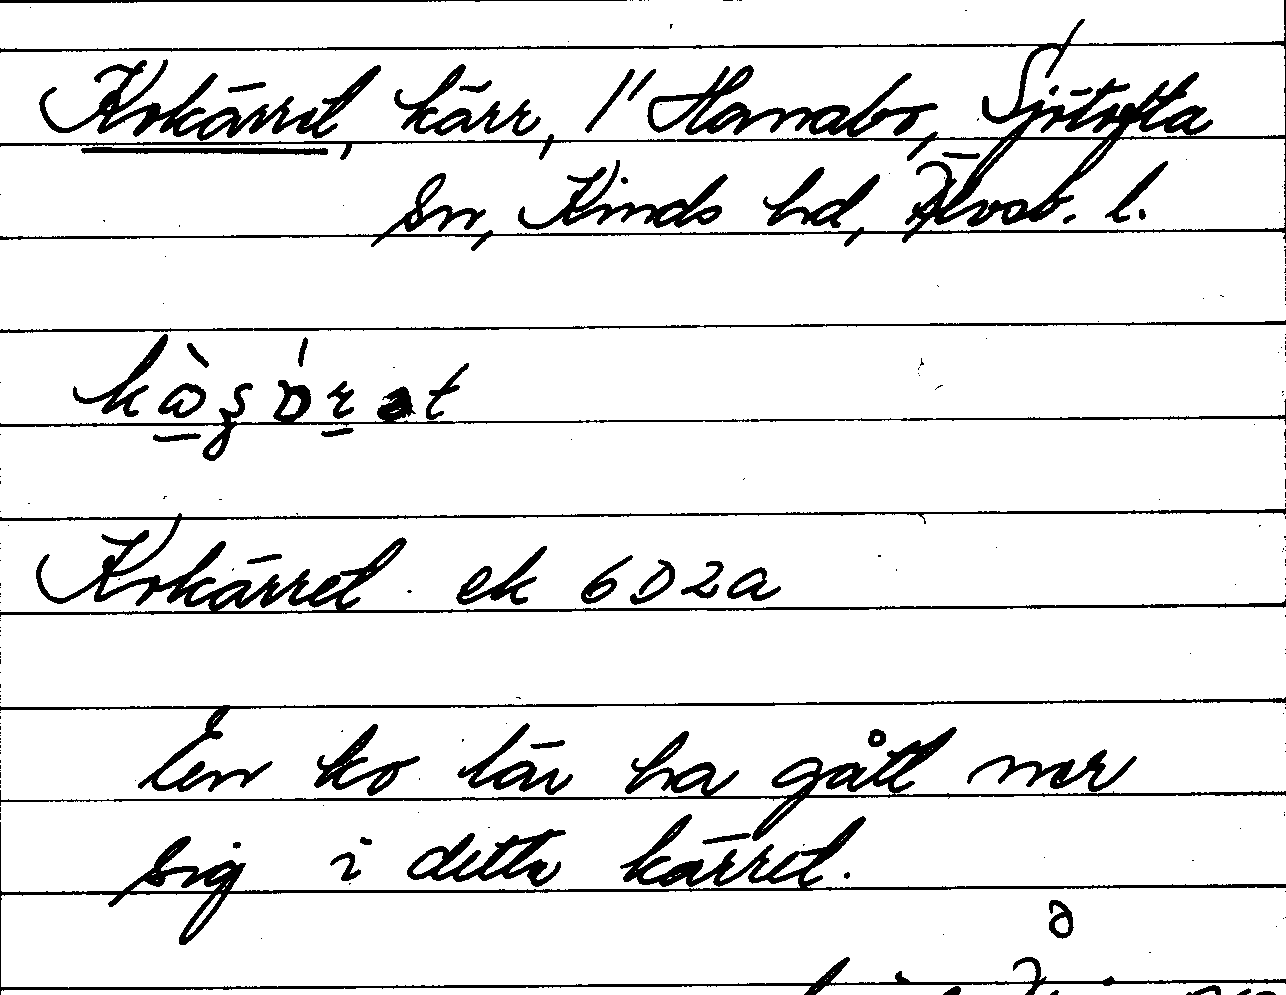 Kokärret, kärr, 1" Hanabo, Sjötofta
sn, Kinds hd, Älvsb. l.
Kokärret ek 6D2a
En ko lär ha gått ner
sig i detta kärret.